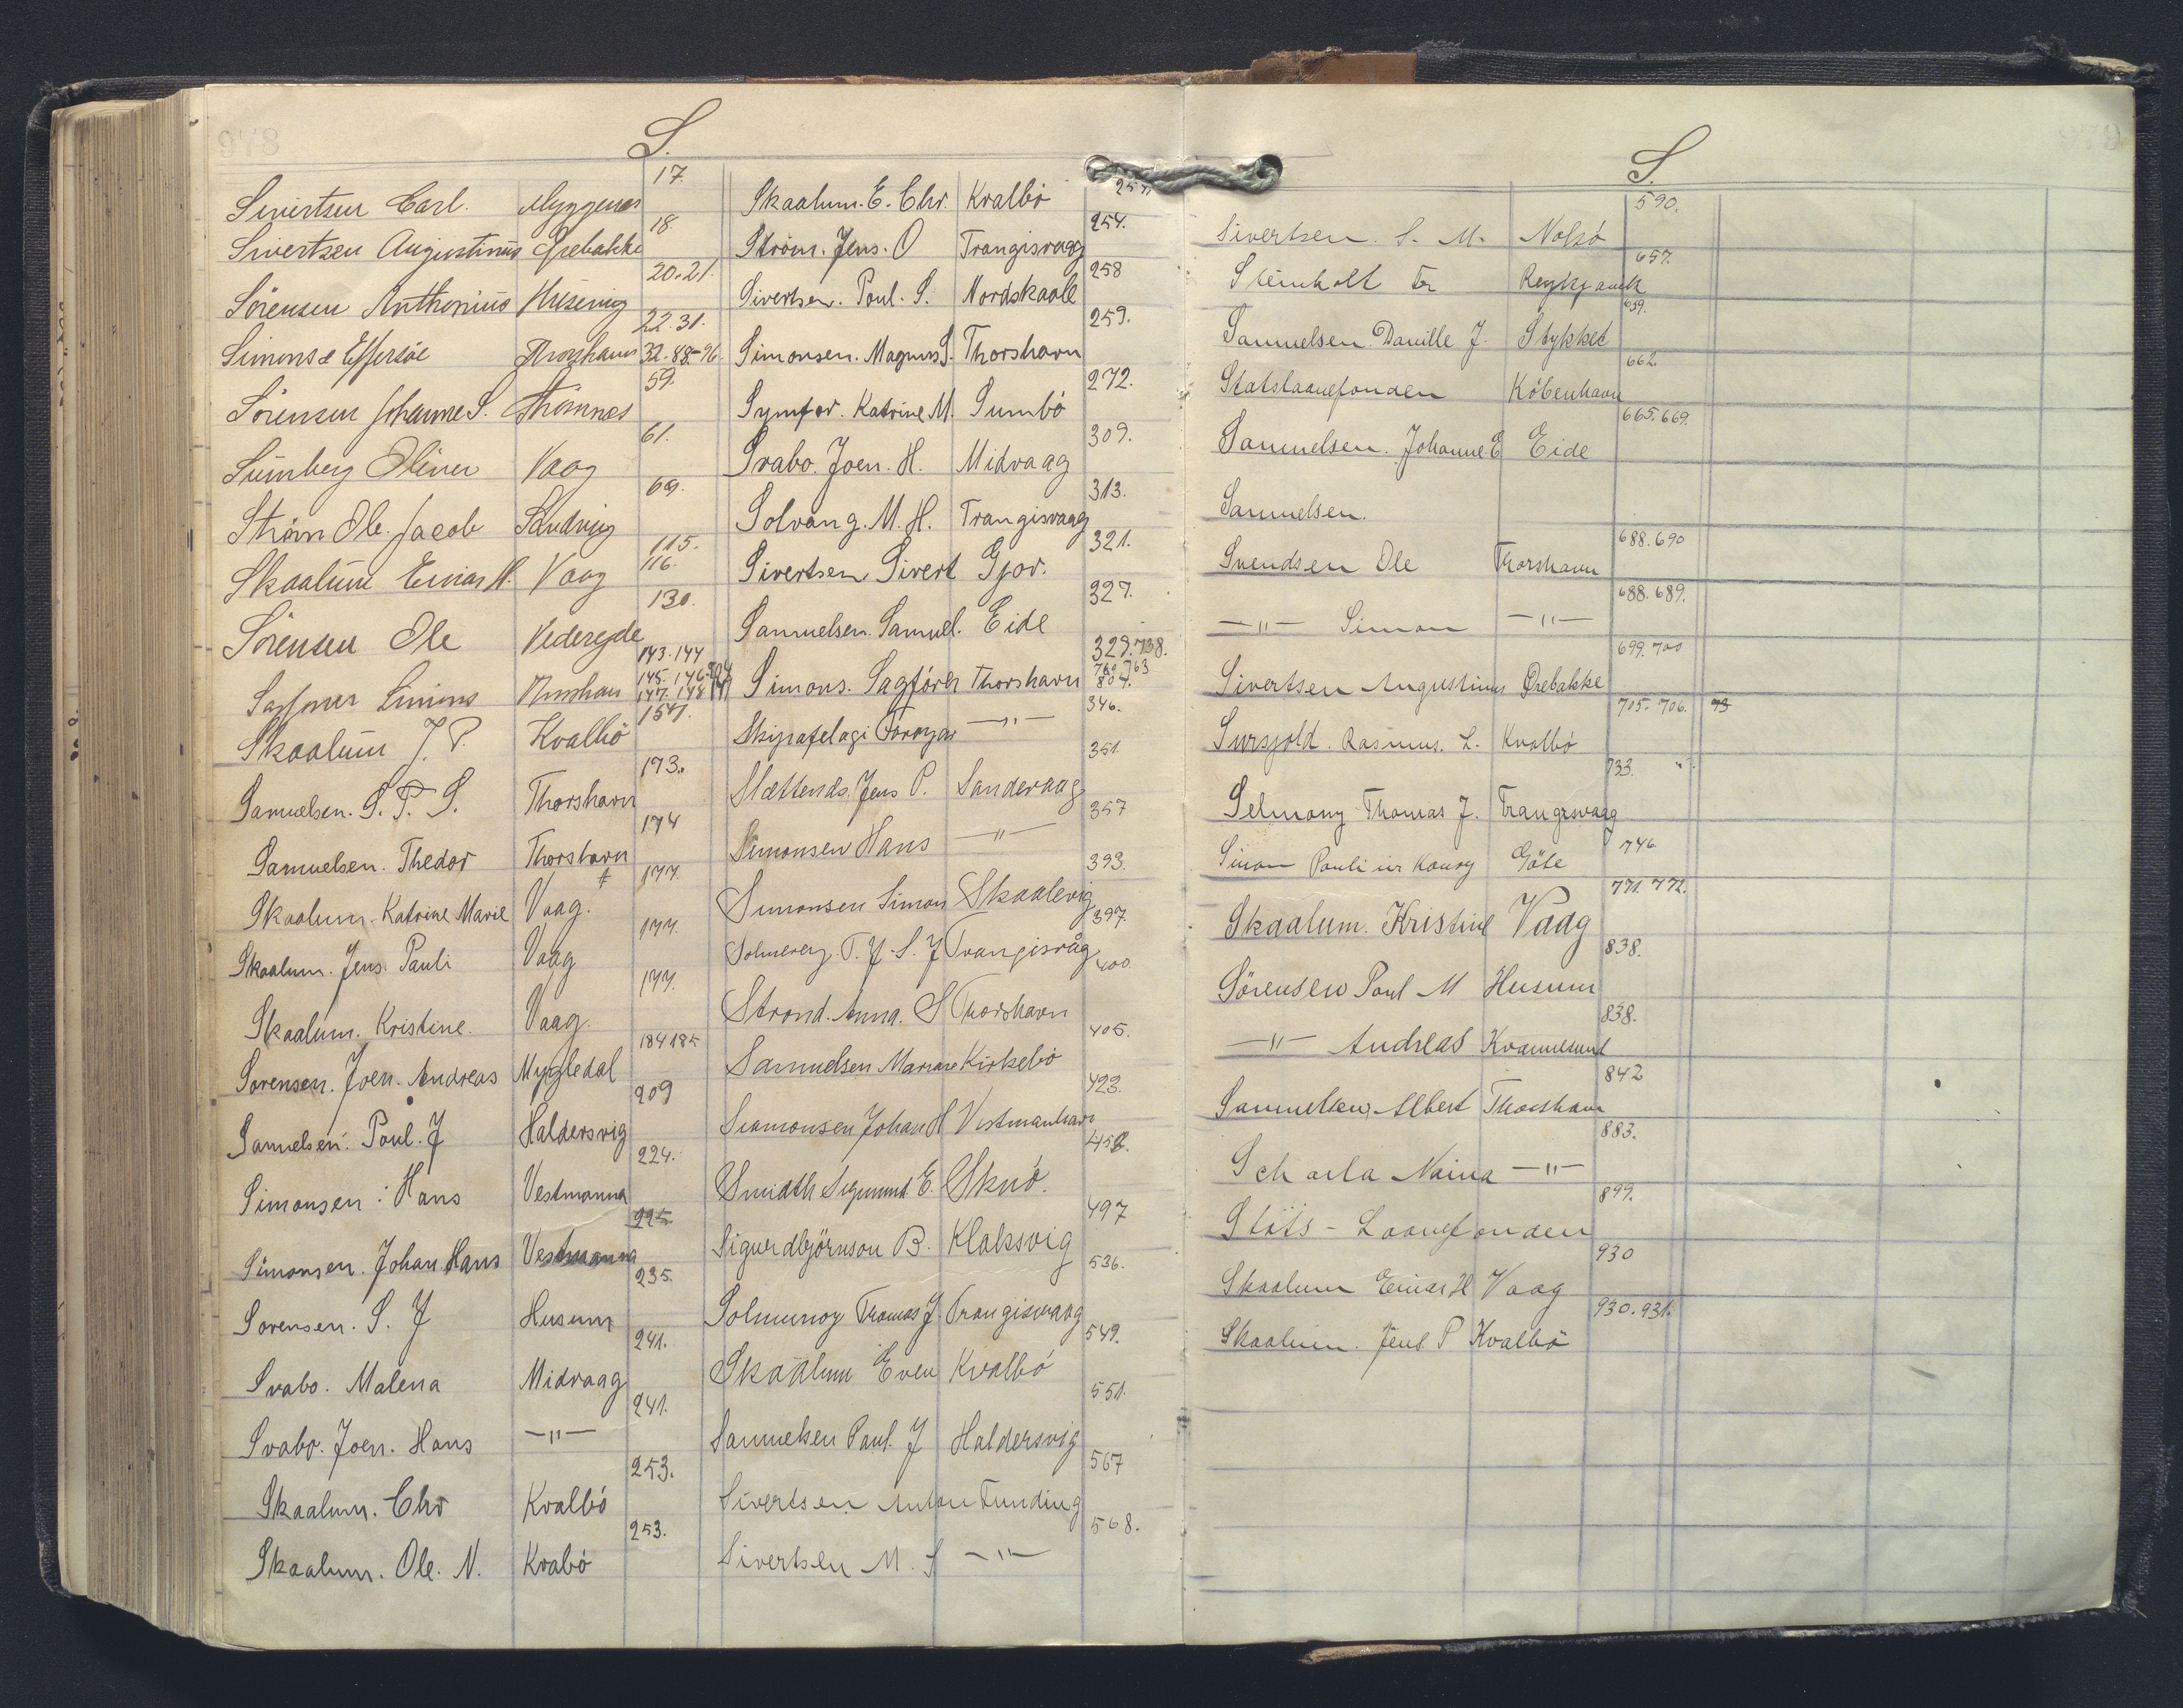 S.
Sivertsen Carl. Myggenes 17.
Sivertsen Augustinus Ørebakke 18.
Sörensen Anthonius Husevig 20.21.
Simons & Effersöe Thorshavn 22.31. 32.88-96.
Sörensen Johanne S. Strömnes 59.
Sumberg Oliver Vaag 61.
Ström Ole Jacob Sandvig 69.
Skaalum Einar H. Vaag 115. 116.
Sörensen Ole Videreyde 130.
Sagförer Simons Thorshavn 143.144 145.146. 147.148
Skaalum J. P. Kvalbö 154.
Samuelsen. S. P. S. Thorshavn 173.
Samuelsen. Thedor Thorshavn 174
Skaalum. Katrine Marie Vaag. 177.
Skaalum. Jens. Pauli Vaag 177.
Skaalum. Kristine. Vaag. 177.
Sorensen. Joen. Andreas Mygledal 184 185
Samelsen. Poul. J Haldersvig 209
Simonsen: Hans Vestmanna 224.
Simonsen. Johan Hans Vestmanna 225
Sorensen. S. J Husum 235.
Svabo. Malena Midvaag 241.
Svabo. Joen. Hans —"— 241.
Skaalum. Chr Kvalbö 253.
Skaalum. Ole. N. Kvabö 253.
Skaalum. E. Chr. Kvalbö
Ström. Jens. O Trangisvaag 254.
Sivertsen. Poul. S. Nordskaale 258
Simonsen. Magnus S. Thorshavn 259.
Symfor. Katrine M. Sumbö 272.
Svabo. Joen. H. Midvaag 309.
Solvang. M. H. Trangisvaag 313.
Sivertsen Sivert Gjov. 321.
Samuelsen. Samuel. Eide 327.
Simons. Sagförer Thorshavn 329.738. 760.763 804.
Skipafelagi Föroyar —"— 346.
Slættends. Jens P. Sandevaag 351.
Simonsen Hans —"— 357
Simonsen Simon Skaalevig 393.
T. J. S. J Trangisvåg 397.
Strond. Anna. S Thorshavn 400.
Samuelsen Mariane Kirkebö 405.
Simonsen Johan H Vestmanhavn 423.
Smidth Sigmund E. Skuö. 452.
Sigurdbjörnson B. Klaksvig 497
Solmunoy Thomas J. Trangisvaag 536.
Skaalum Even Kvalbö 549.
Samuelsen Paul. J Haldersvig 551.
Sivertsen Anton Funding 567
Sivertsen M. S —"— 568.
S.
Sivertsen. S. M. Nolsö 590.
Steinholt Reykjavik 657.
Samuelsen. Danille J. Stykket 659.
Statslaanefonden Köbenhavn 662.
Samuelsen. Johanne E Eide 665.669.
Samuelsen.
Svendsen Ole Thorshavn 688.690
—"— Simon —"— 688.689.
Sivertsen Augustinus Ørebakke 699.700
Rasmus. L. Kvalbö 705.706. 73
Selmony Thomas J. Trangisvaag 733.
Simon Pauli i Göte 746
Skaalum. Kristine Vaag 771.772.
Sörensen Poul M Husum 838.
—"— Andreas Kvannesund 838.
Samuelsen Albert Thorshavn 842
Naina —"— 883.
Stats-Laanefonden 899.
Skaalum Einar H Vaag 930
Skaalum. Jens. P Kvalbö 930.931.